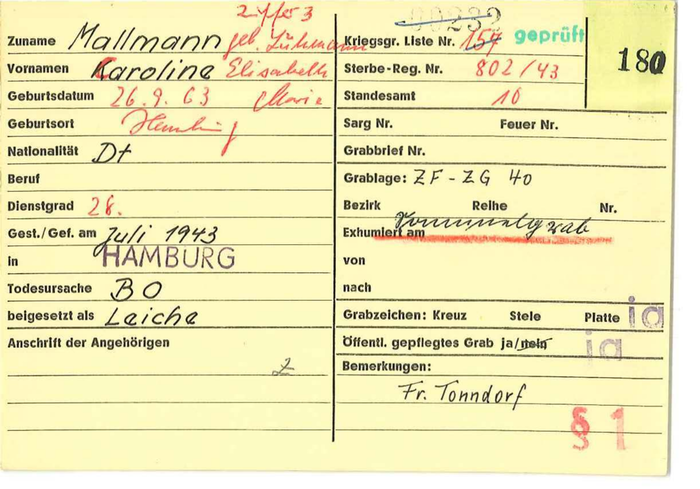 24/53 00232
Zuname Mallmann geb. Kriegsgr. Liste Nr. 154 geprüft
180
Vornamen Karoline Elisabeth Sterbe-Reg. Nr. 802/43
Marie
Geburtsdatum 26.9.63 Standesamt 10
Geburtsort Hamburg Sarg Nr. Feuer Nr.
Nationalität Dt Grabbrief Nr.
Beruf Grablage: ZF - ZG 40
Dienstgrad 28. Bezirk Reihe Nr.
Sammelgrab
Gest./Gef. am Juli 1943 Exhumiert am
in HAMBURG von
Todesursache BO nach
beigesetzt als Leiche Grabzeichen: Kreuz Stele Platte ja
Anschrift der Angehörigen Öffentl. gepflegtes Grab ja/nein ja
Bemerkungen:
Fr. Tonndorf
§ 1